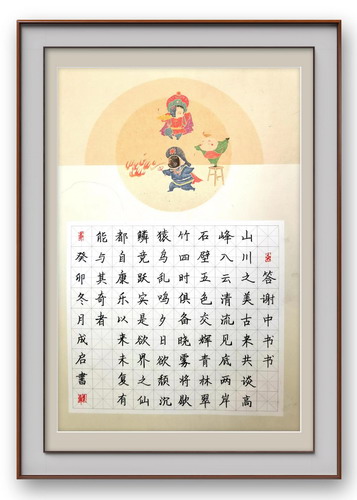 答谢中书书
山川之美古来共谈高
峰入云清流见底两岸
石壁五色交辉青林翠
竹四时俱备晓雾将歇
猿鸟乱鸣夕日欲颓沉
鳞竞跃实是欲界之仙
都自康乐以来未复有
能与其奇者
癸卯冬月成启書